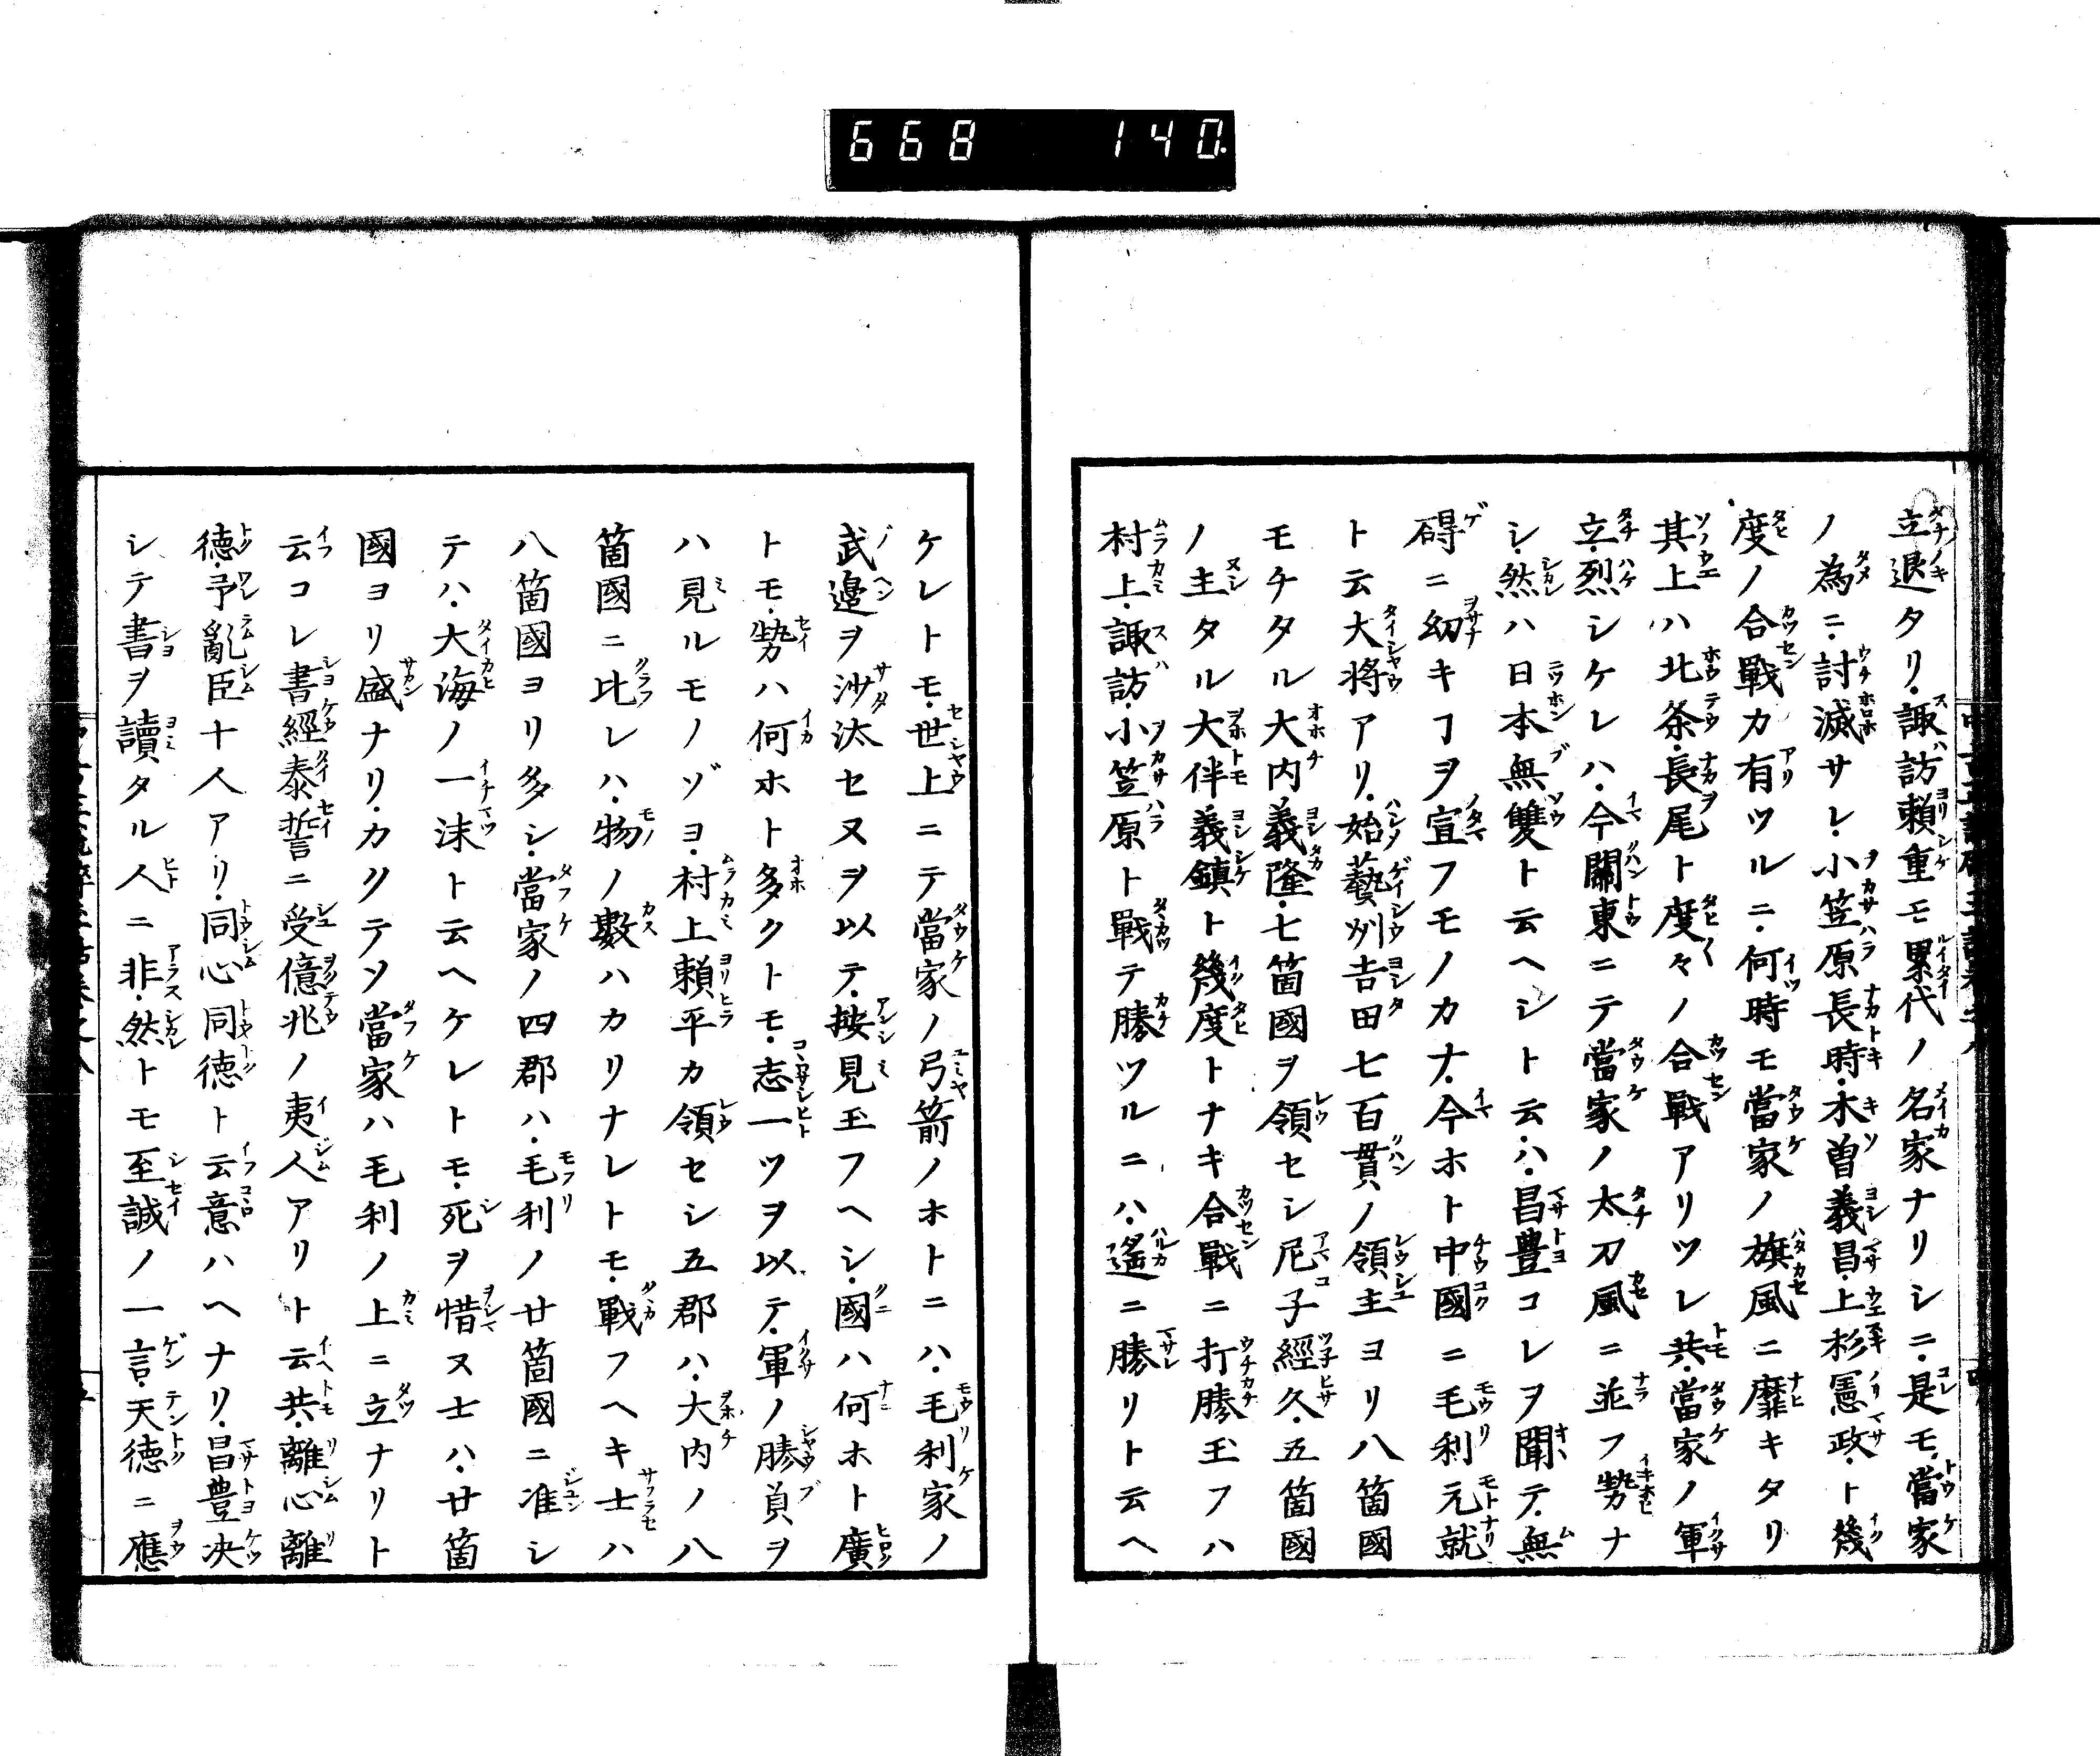 668 140
立退タリ諏訪頼重モ累代ノ名家ナリシニ是モ當家
ノ為ニ討滅サレ小笠原長時木曽義昌上杉憲政ト幾
度ノ合戰カ有ツルニ何時モ當家ノ旗風ニ靡キタリ
其上ハ北条長尾ト度々ノ合戰アリツレ共當家ノ軍
立烈シケレハ今關東ニテ當家ノ太刀風ニ並フ勢ナ
シ然ハ日本無雙ト云ヘシト云ハ昌豊コレヲ聞テ無
碍ニ幼キヿヲ宣フモノカナ今ホト中國ニ毛利元就
ト云大將アリ始藝州吉田七百貫ノ領主ヨリ八箇國
モチタル大内義隆七箇國ヲ領セシ尼子經久五箇國
ノ主タル大伴義鎮ト幾度トナキ合戰ニ打勝玉フハ
村上諏訪小笠原ト戰テ勝ツルニハ遙ニ勝リト云ヘ
ケレトモ世上ニテ當家ノ弓箭ノホトニハ毛利家ノ
武邉ヲ沙汰セヌヲ以テ按見玉フヘシ國ハ何ホト廣
トモ勢ハ何ホト多クトモ志一ツヲ以テ軍ノ勝負ヲ
ハ見ルモノゾヨ村上頼平カ領セシ五郡ハ大内ノ八
箇國ニ比レハ物ノ數ハカリナレトモ戰フヘキ士ハ
八箇國ヨリ多シ當家ノ四郡ハ毛利ノ廿箇國ニ准シ
テハ大海ノ一沫ト云ヘケレトモ死ヲ惜ヌ士ハ廿箇
國ヨリ盛ナリカクテソ當家ハ毛利ノ上ニ立ナリト
云コレ書經泰誓ニ受億兆ノ夷人アリト云共離心離
徳予亂臣十人アリ同心同徳ト云意ハヘナリ昌豊决
シテ書ヲ讀タル人ニ非然トモ至誠ノ一言天徳ニ應